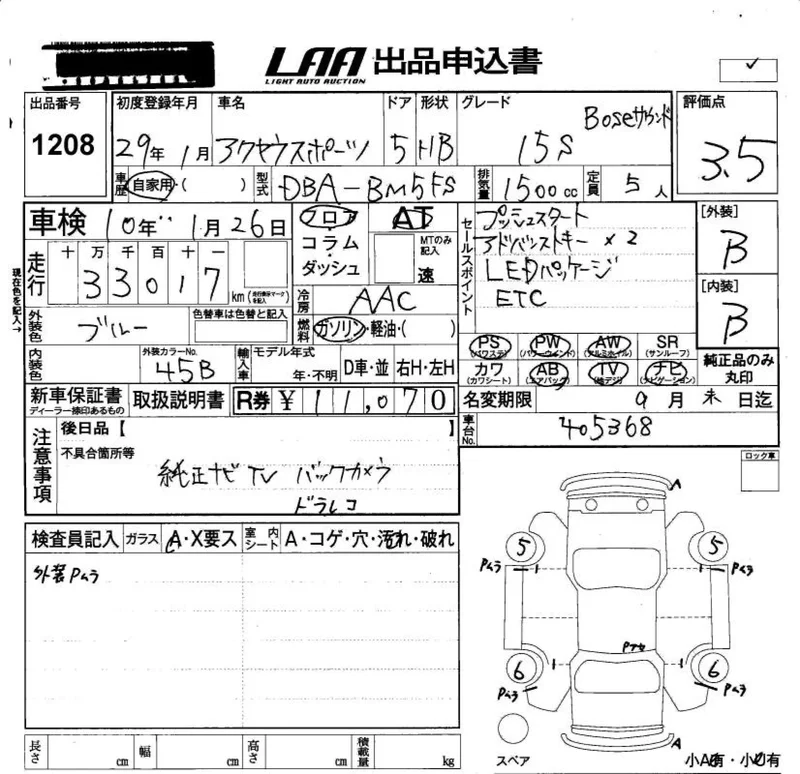 LAA 出品申込書
LIGHT AUTO AUCTION
出品番号 初度登録年月 車名 ドア 形状 グレード 評価点
1208 29年 1月 アクセラスポーツ 5 HB 15S Boseサウンド 3.5
車歴 自家用・( ) 型式 DBA-BM5FS 排気量 1500cc 定員 5人
車検 10年 1月26日 フロア・コラム・ダッシュ AT MTのみ記入 速
セールスポイント プッシュスタート
アドバンストキー×2
LEDパッケージ
ETC
[外装] B
[内装] B
現在色を記入→
走行 十 万 千 百 十 一
33017 km (走行表示マークを記入)
冷房 AAC
外装色 ブルー 色替車は色替と記入 燃料 ガソリン・軽油・( )
PS (パワステ) PW (パワーウインド) AW (アルミホイル) SR (サンルーフ)
カワ (カワシート) AB (エアバック) TV (地デジ) ナビ (ナビゲーション)
純正品のみ丸印
内装色 外装カラーNo. 45B 輸入車 モデル年式 年・不明 D車・並 右H・左H
新車保証書 ディーラー捺印あるもの 取扱説明書 R券 ¥11,070 名変期限 9月末日迄
車台No. 405368
注意事項 後日品【
不具合箇所等
純正ナビ TV バックカメラ
ドラレコ
ロック車
検査員記入 ガラス A・X要ス 室内シート A・コゲ・穴・汚れ・破れ
外装Pムラ
A
5 5
Pムラ Pムラ
Pアセ
6 6
Pムラ Pムラ
A
スペア 小A有・小U有
長さ cm 幅 cm 高さ cm 積載量 kg